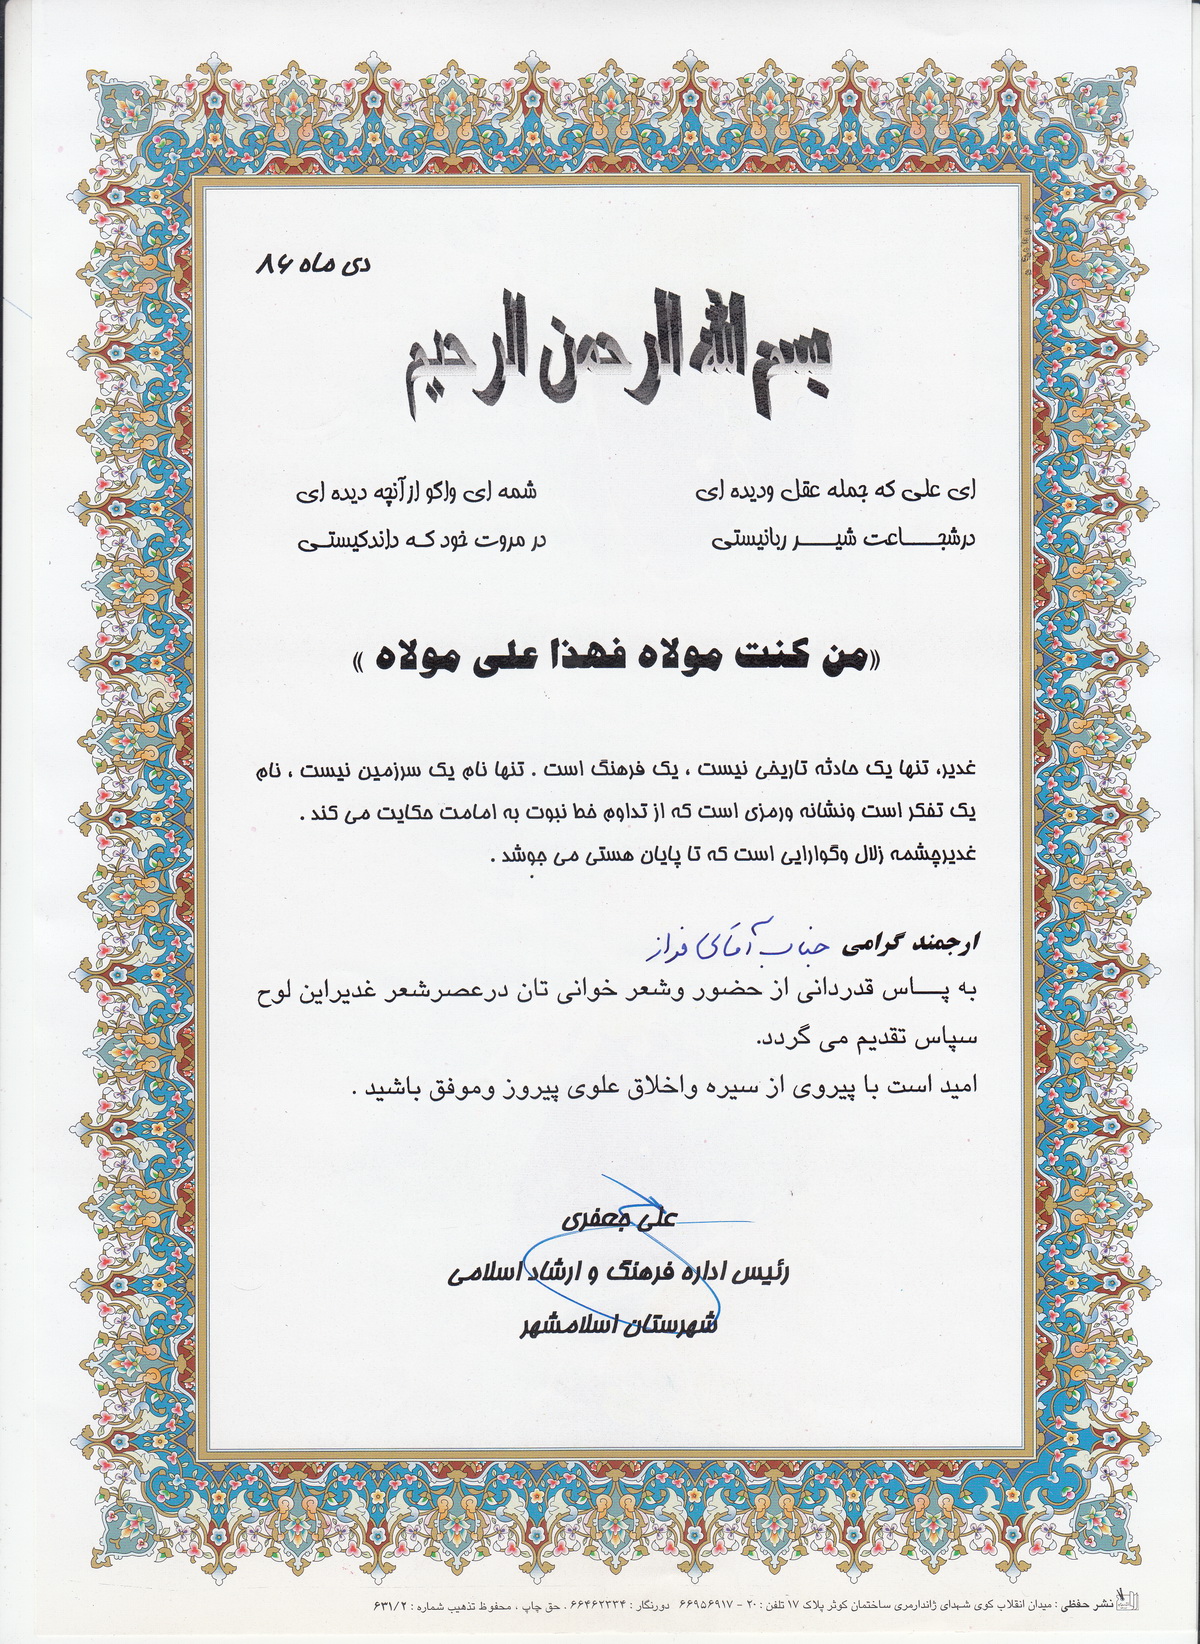 دی ماه ۸۶
بسم الله الرحمن الرحیم
ای علی که جمله عقل ودیده ای شمه ای واگو ازآنچه دیده ای
درشجـــاعت شیـــر ربانیستی در مروت خود که داندکیستی
«من کنت مولاه فهذا علی مولاه »
غدیر، تنها یک حادثه تاریخی نیست ، یک فرهنگ است . تنها نام یک سرزمین نیست ، نام
یک تفکر است ونشانه ورمزی است که از تداوم خط نبوت به امامت حکایت می کند .
غدیرچشمه زلال وگوارایی است که تا پایان هستی می جوشد .
ارجمند گرامی جناب آقای فراز
به پـــاس قدردانی از حضور وشعر خوانی تان درعصرشعر غدیراین لوح
سپاس تقدیم می گردد.
امید است با پیروی از سیره واخلاق علوی پیروز وموفق باشید .
علی جعفری
رئیس اداره فرهنگ و ارشاد اسلامی
شهرستان اسلامشهر
نشر حفظی : میدان انقلاب کوی شهدای ژاندارمری ساختمان کوثر پلاک ۱۷ تلفن : ۲۰ - ۶۶۹۵۶۹۱۷ دورنگار : ۶۶۴۶۲۳۳۴ . حق چاپ ، محفوظ تذهیب شماره : ۶۳۱/۲